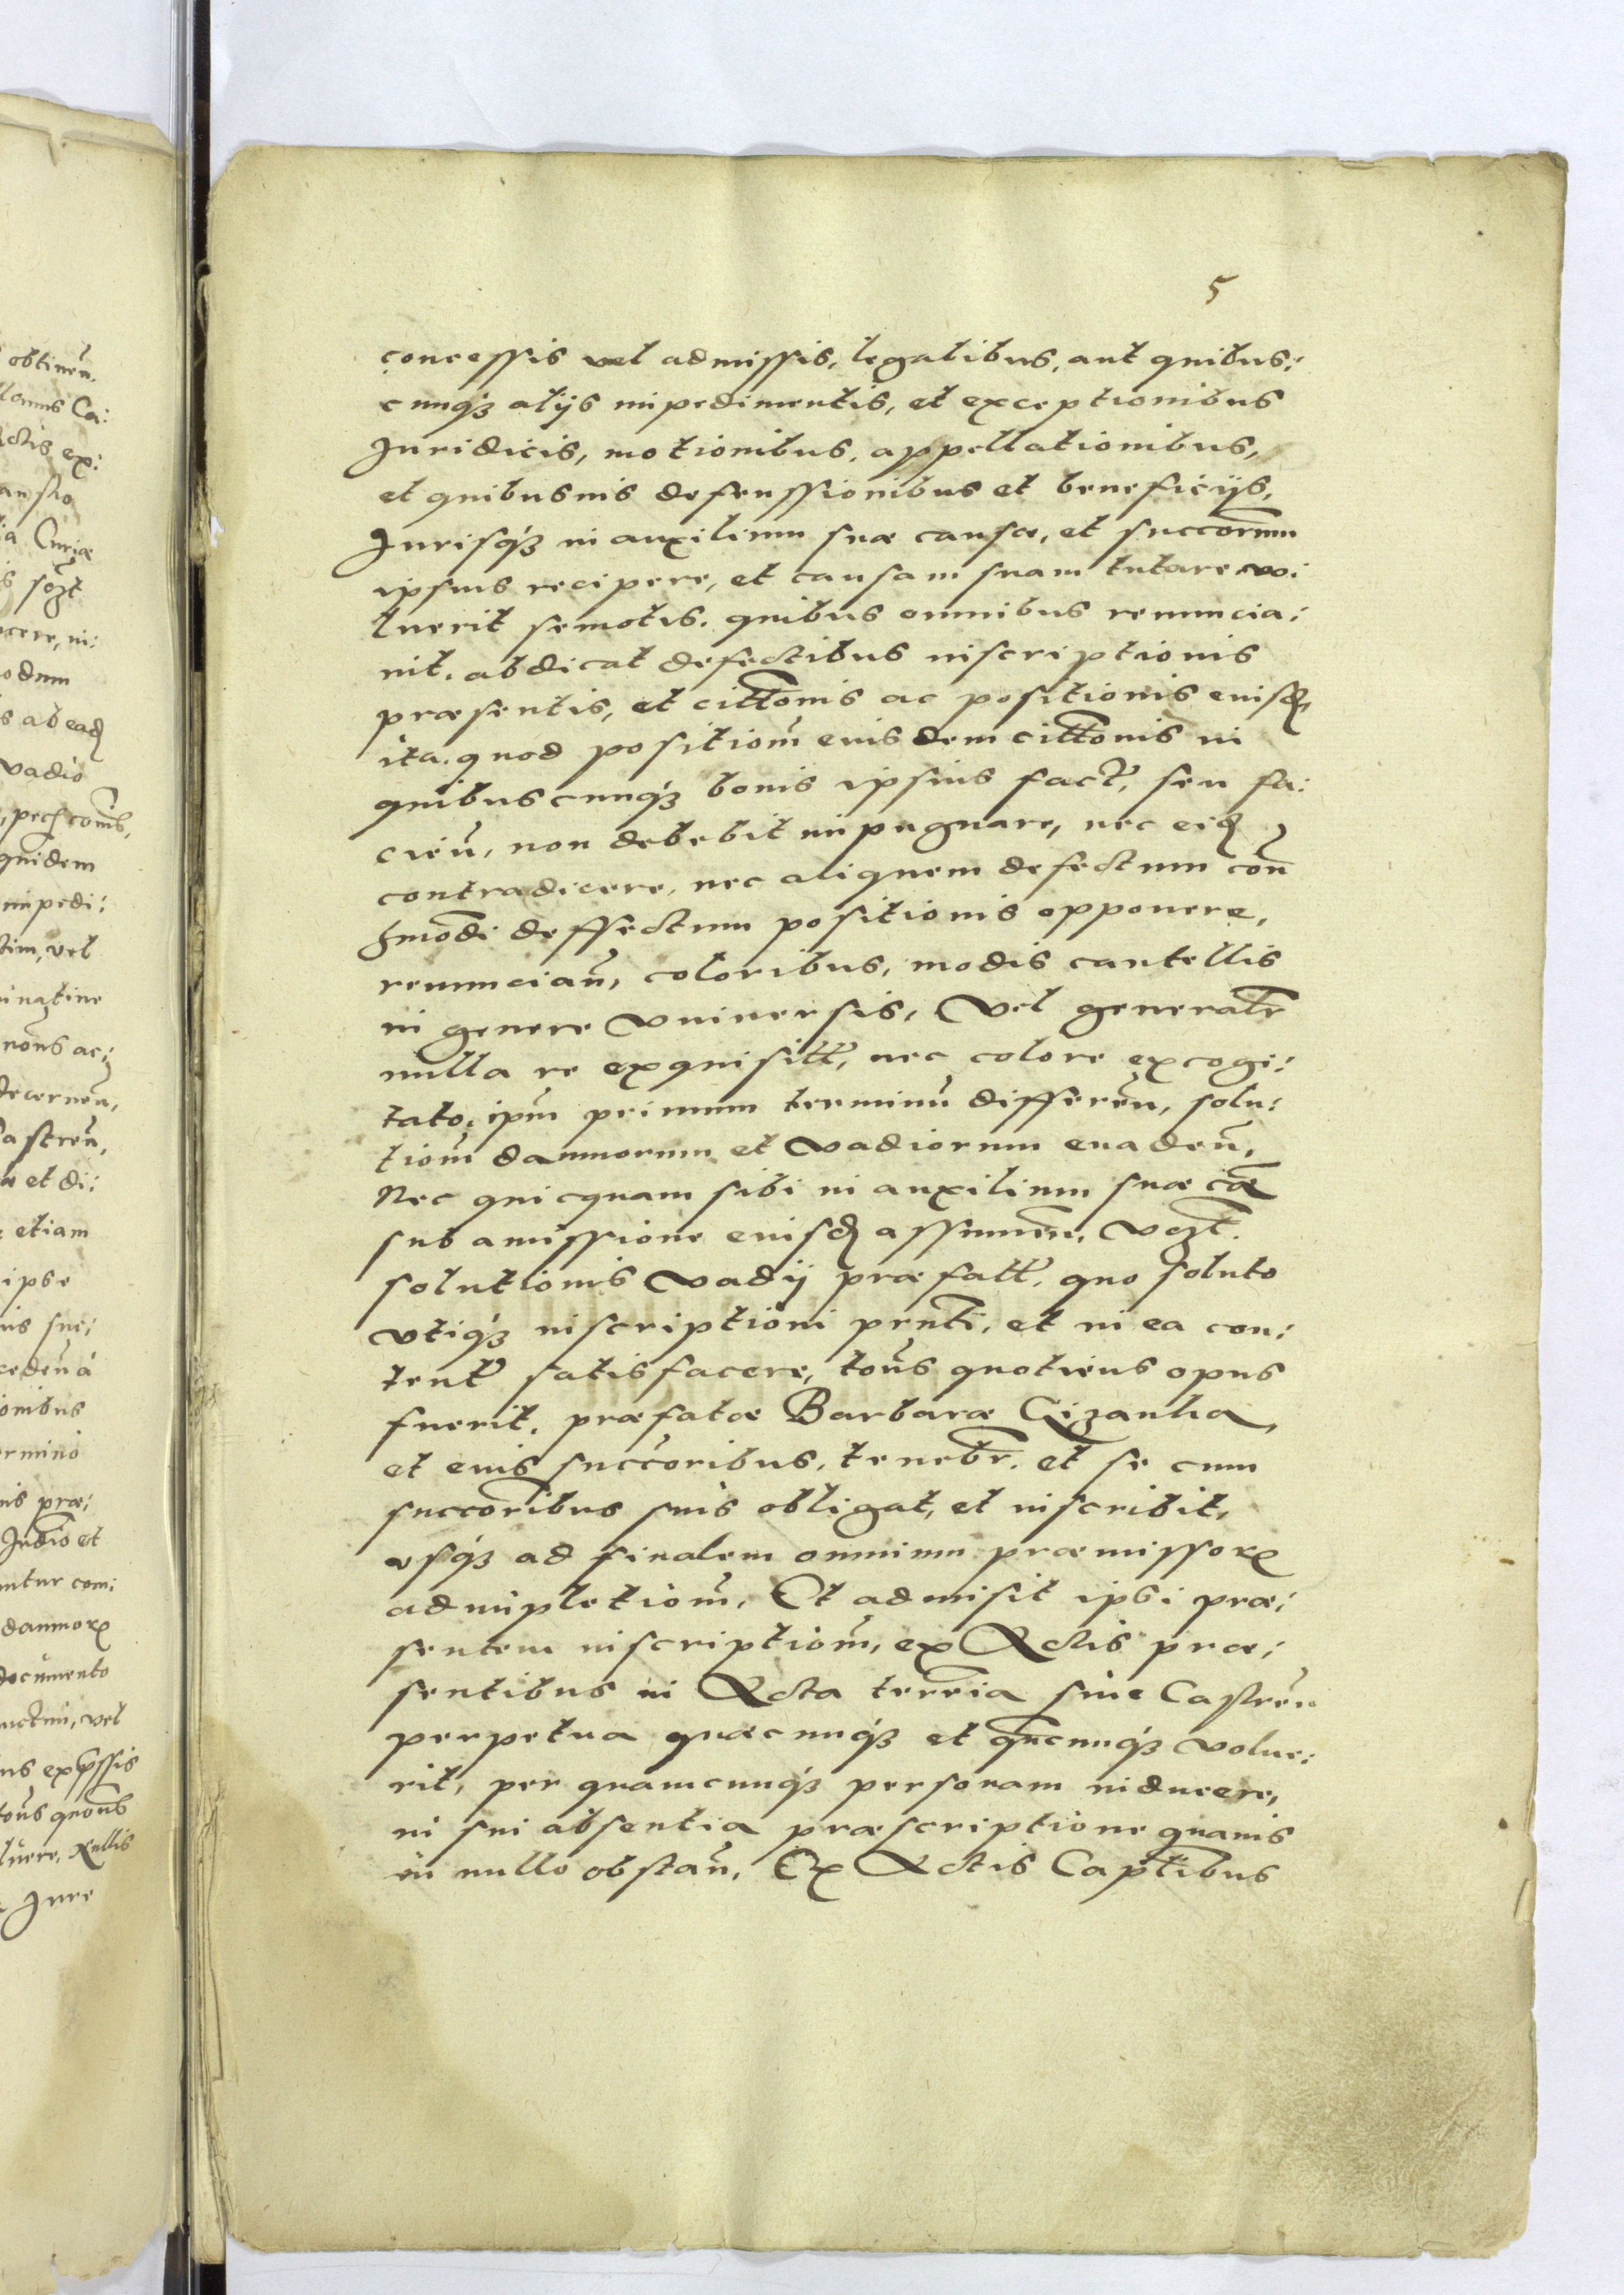 5
concessis vel admissis, legalibus, aut quibus:
cunq́ꝫ alijs impedimentis, et exceptionibus
Juridicis, motionibus, appellationibus,
et quibusuis defenssionibus et beneficijs,
Jurisq́ꝫ in auxilium suæ causæ, et succorum
ipsius recipere, et causam suam tutare vo:
luerit semotis. quibus omnibus renuncia:
uit. abdicat defectibus inscriptionis
præsentis, et cittõnis ac positionis euisd,
ita. quod positiom̃ euisdem cittõnis in
quibuscunq́ꝫ bonis ipsius fact, seu fa:
cieñ, non debebit impugnare, nec eid
contradicere, nec aliquem defectum coñ
hmõdi deffectum positionis opponere,
renuncian̄, coloribus, modis cautellis
in genere vniuersis, Vel generalr̃
nulla re exquisitt, nec colore excogi:
tato. ipm̃ primum terminũ differen̄, solu:
tiom̃ damnorum et vadiorum euaden̄,
Nec quicquam sibi in auxilium suæ cæ̃
sub amissione euisd assumen̄, vgt.
solutionis vadij præfatt, quo soluto
vtiq́ꝫ inscriptioni prnti, et in ea con:
tent satisfacere, ton̄s quotiens opus
fuerit. præfatæ Barbaræ Gizanka,
et euis succoribus. tenebr. et se cum
succoribus suis obligat, et inscribit,
vsq́ꝫ ad finalem omnium præmissoꝝ
adimpletiom̃, Et admisit ipsi præ:
sentem inscriptiom̃, ex Actis præ:
sentibus in Acta terreia siue Castren̄
perpetua quæcunq́ꝫ et qñcunq́ꝫ volue:
rit, per quamcunq́ꝫ personam inducere,
in sui absentia præscriptione quauis
in nullo obstan̄, Ex Actis Captibus
obtinen̄.
Ca:
ex:
Curiæ
sgt
odum
ab ead
vadio
quidem
impedi:
vel
ac:
decernen̄,
et di:
etiam
ipse
ceden̄ à
præ:
et
com:
damnoꝝ
documento
vel
Jure